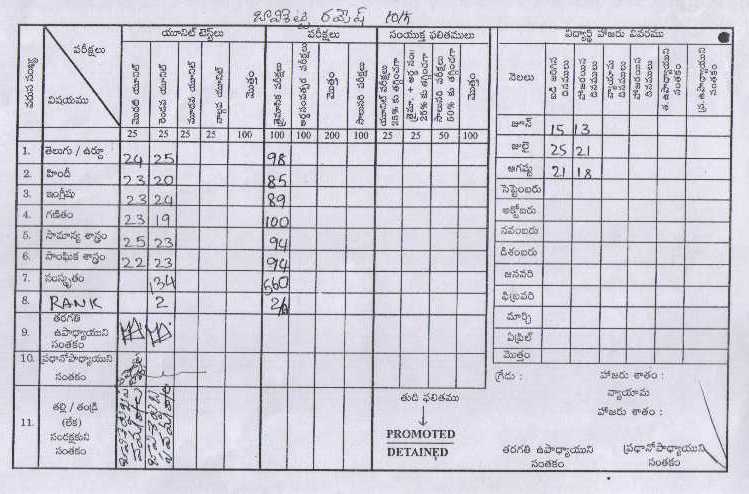 బావిశెట్టి రమేష్ 10/5
పరీక్షలు
వరుస సంఖ్య
విషయము
యూనిట్ టెస్ట్‌లు
పరీక్షలు
సంయుక్త ఫలితములు
మొదటి యూనిట్ రెండవ యూనిట్ మూడవ యూనిట్ నాల్గవ యూనిట్ మొత్తం త్రైమాసిక పరీక్షలు అర్ధసంవత్సర పరీక్షలు మొత్తం సాలుసరి పరీక్షలు యూనిట్ పరీక్షలు 25% కు తగ్గించగా త్రైమా. + అర్ధ సం॥ 25% కు తగ్గించగా సాలుసరి పరీక్షలు 50% కు తగ్గించగా మొత్తం
25 25 25 25 100 100 100 200 100 25 25 50 100
1. తెలుగు / ఉర్దూ 24 25 98
2. హిందీ 23 20 85
3. ఇంగ్లీషు 23 24 89
4. గణితం 23 19 100
5. సామాన్య శాస్త్రం 25 23 94
6. సాంఘిక శాస్త్రం 22 23 94
7. సంస్కృతం 134 560
8. RANK 2
9. తరగతి ఉపాధ్యాయుని సంతకం
10. ప్రధానోపాధ్యాయుని సంతకం
11. తల్లి / తండ్రి (లేక) సంరక్షకుని సంతకం
తుది ఫలితము
PROMOTED
DETAINED
విద్యార్థి హాజరు వివరము
నెలలు బడి జరిగిన దినములు హాజరయిన దినములు వ్యాయామ దినములు హాజరయిన దినములు త. ఉపాధ్యాయుని సంతకం ప్ర. ఉపాధ్యాయుని సంతకం
జూన్ 15 13
జులై 25 21
ఆగష్టు 21 18
సెప్టెంబరు
అక్టోబరు
నవంబరు
డిశంబరు
జనవరి
ఫిబ్రవరి
మార్చి
ఏప్రిల్
మొత్తం
గ్రేడు : హాజరు శాతం :
వ్యాయామ
హాజరు శాతం :
తరగతి ఉపాధ్యాయుని ప్రధానోపాధ్యాయుని
సంతకం సంతకం